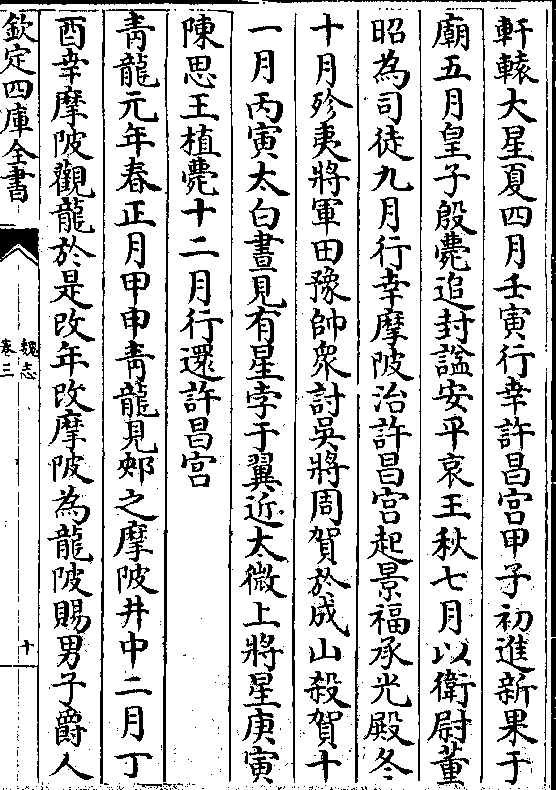 軒轅大星夏四月壬寅行幸許昌宮甲子初進新果于
廟五月皇子殷薨追封諡安平哀王秋七月以衛尉董
昭為司徒九月行幸摩陂治許昌宮起景福承光殿冬
十月殄夷將軍田豫帥衆討吳將周賀於成山殺賀十
一月丙寅太白晝見有星孛于翼近太微上將星庚寅
陳思王植薨十二月行還許昌宮
青龍元年春正月甲申青龍見郟之摩陂井中二月丁
酉幸摩陂觀龍於是改年改摩陂為龍陂賜男子爵人
欽定四庫全書
魏志
卷三
十